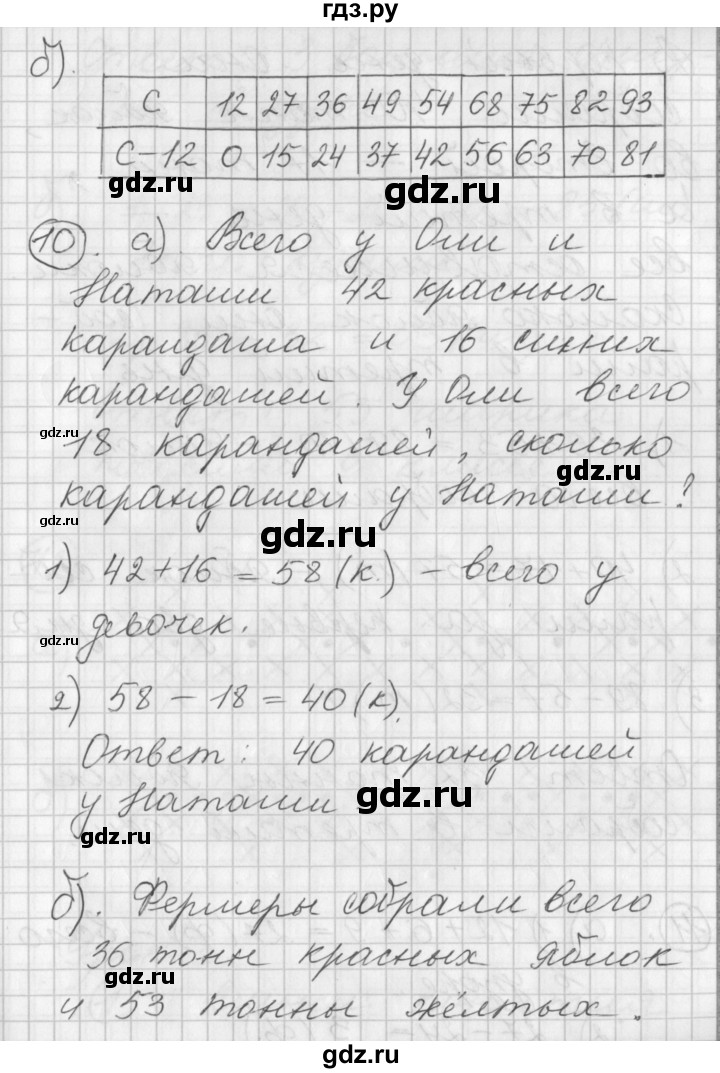 гдз.ру
б).
С 12 27 36 49 54 68 75 82 93
С-12 0 15 24 37 42 56 63 70 81
gdz.ru gdz.ru
10). а). Всего у Оли и
Наташи 42 красных
карандаша и 16 синих
карандашей. У Оли всего
gdz.ru
18 карандашей, сколько
gdz.ru
карандашей у Наташи?
gdz.ru gdz.ru
1) 42+16=58(к.) – всего у
девочек.
gdz.ru
2) 58-18=40(к).
Ответ: 40 карандашей
у Наташи
gdz.ru
gdz.ru
б). Фермеры собрали всего
36 тонн красных яблок
gdz.ru gdz.ru
и 53 тонны жёлтых.
gdz.ru